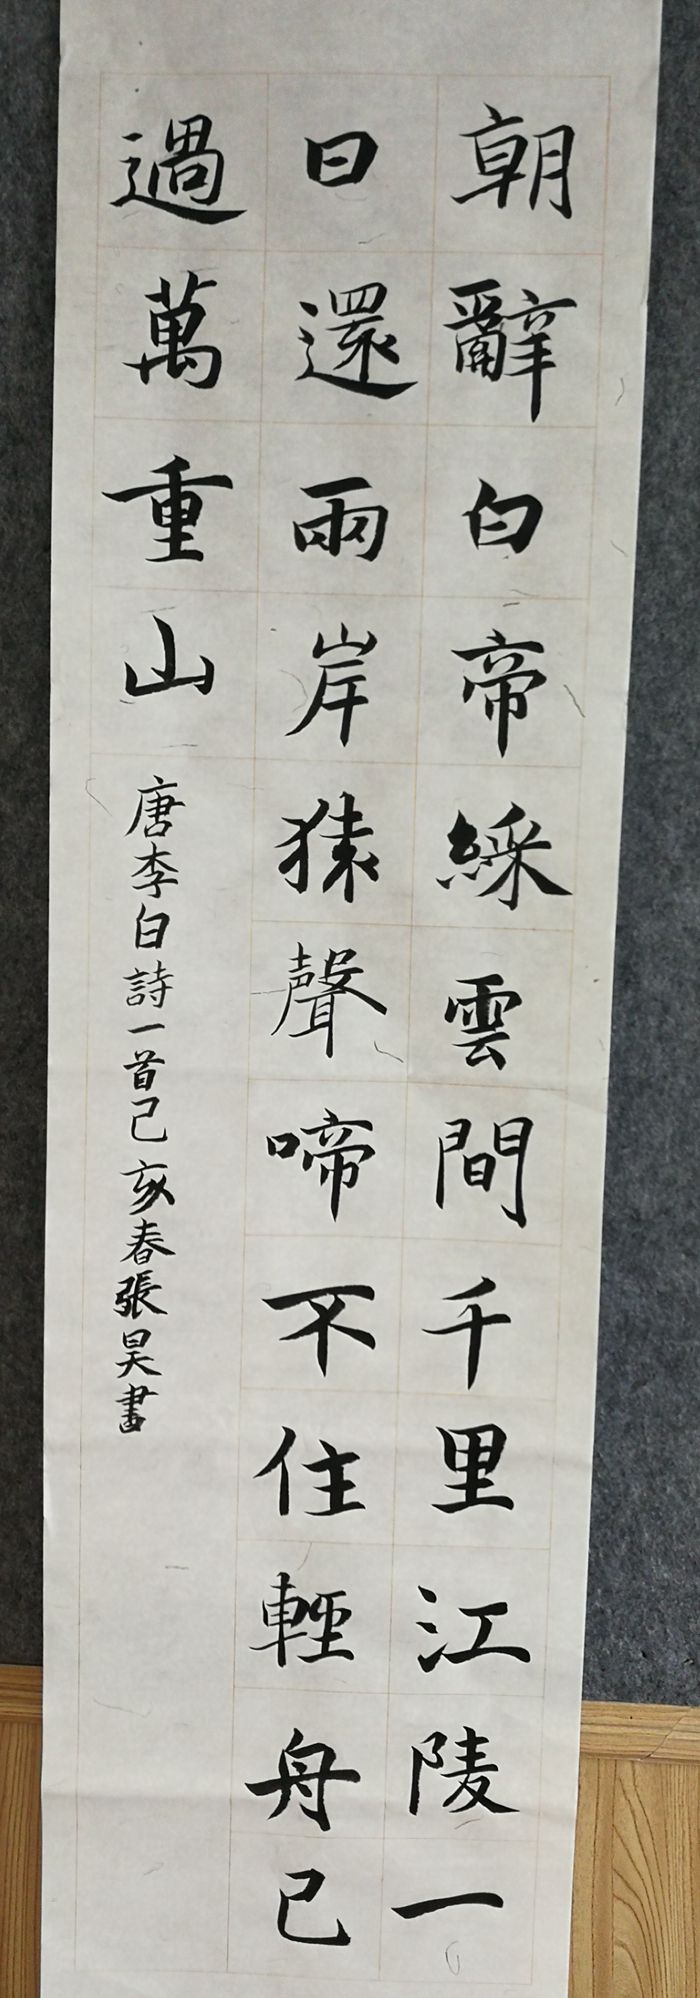 朝辭白帝綵雲間千里江陵一
日還兩岸猿聲啼不住輕舟已
過萬重山
唐李白詩一首己亥春張昊書